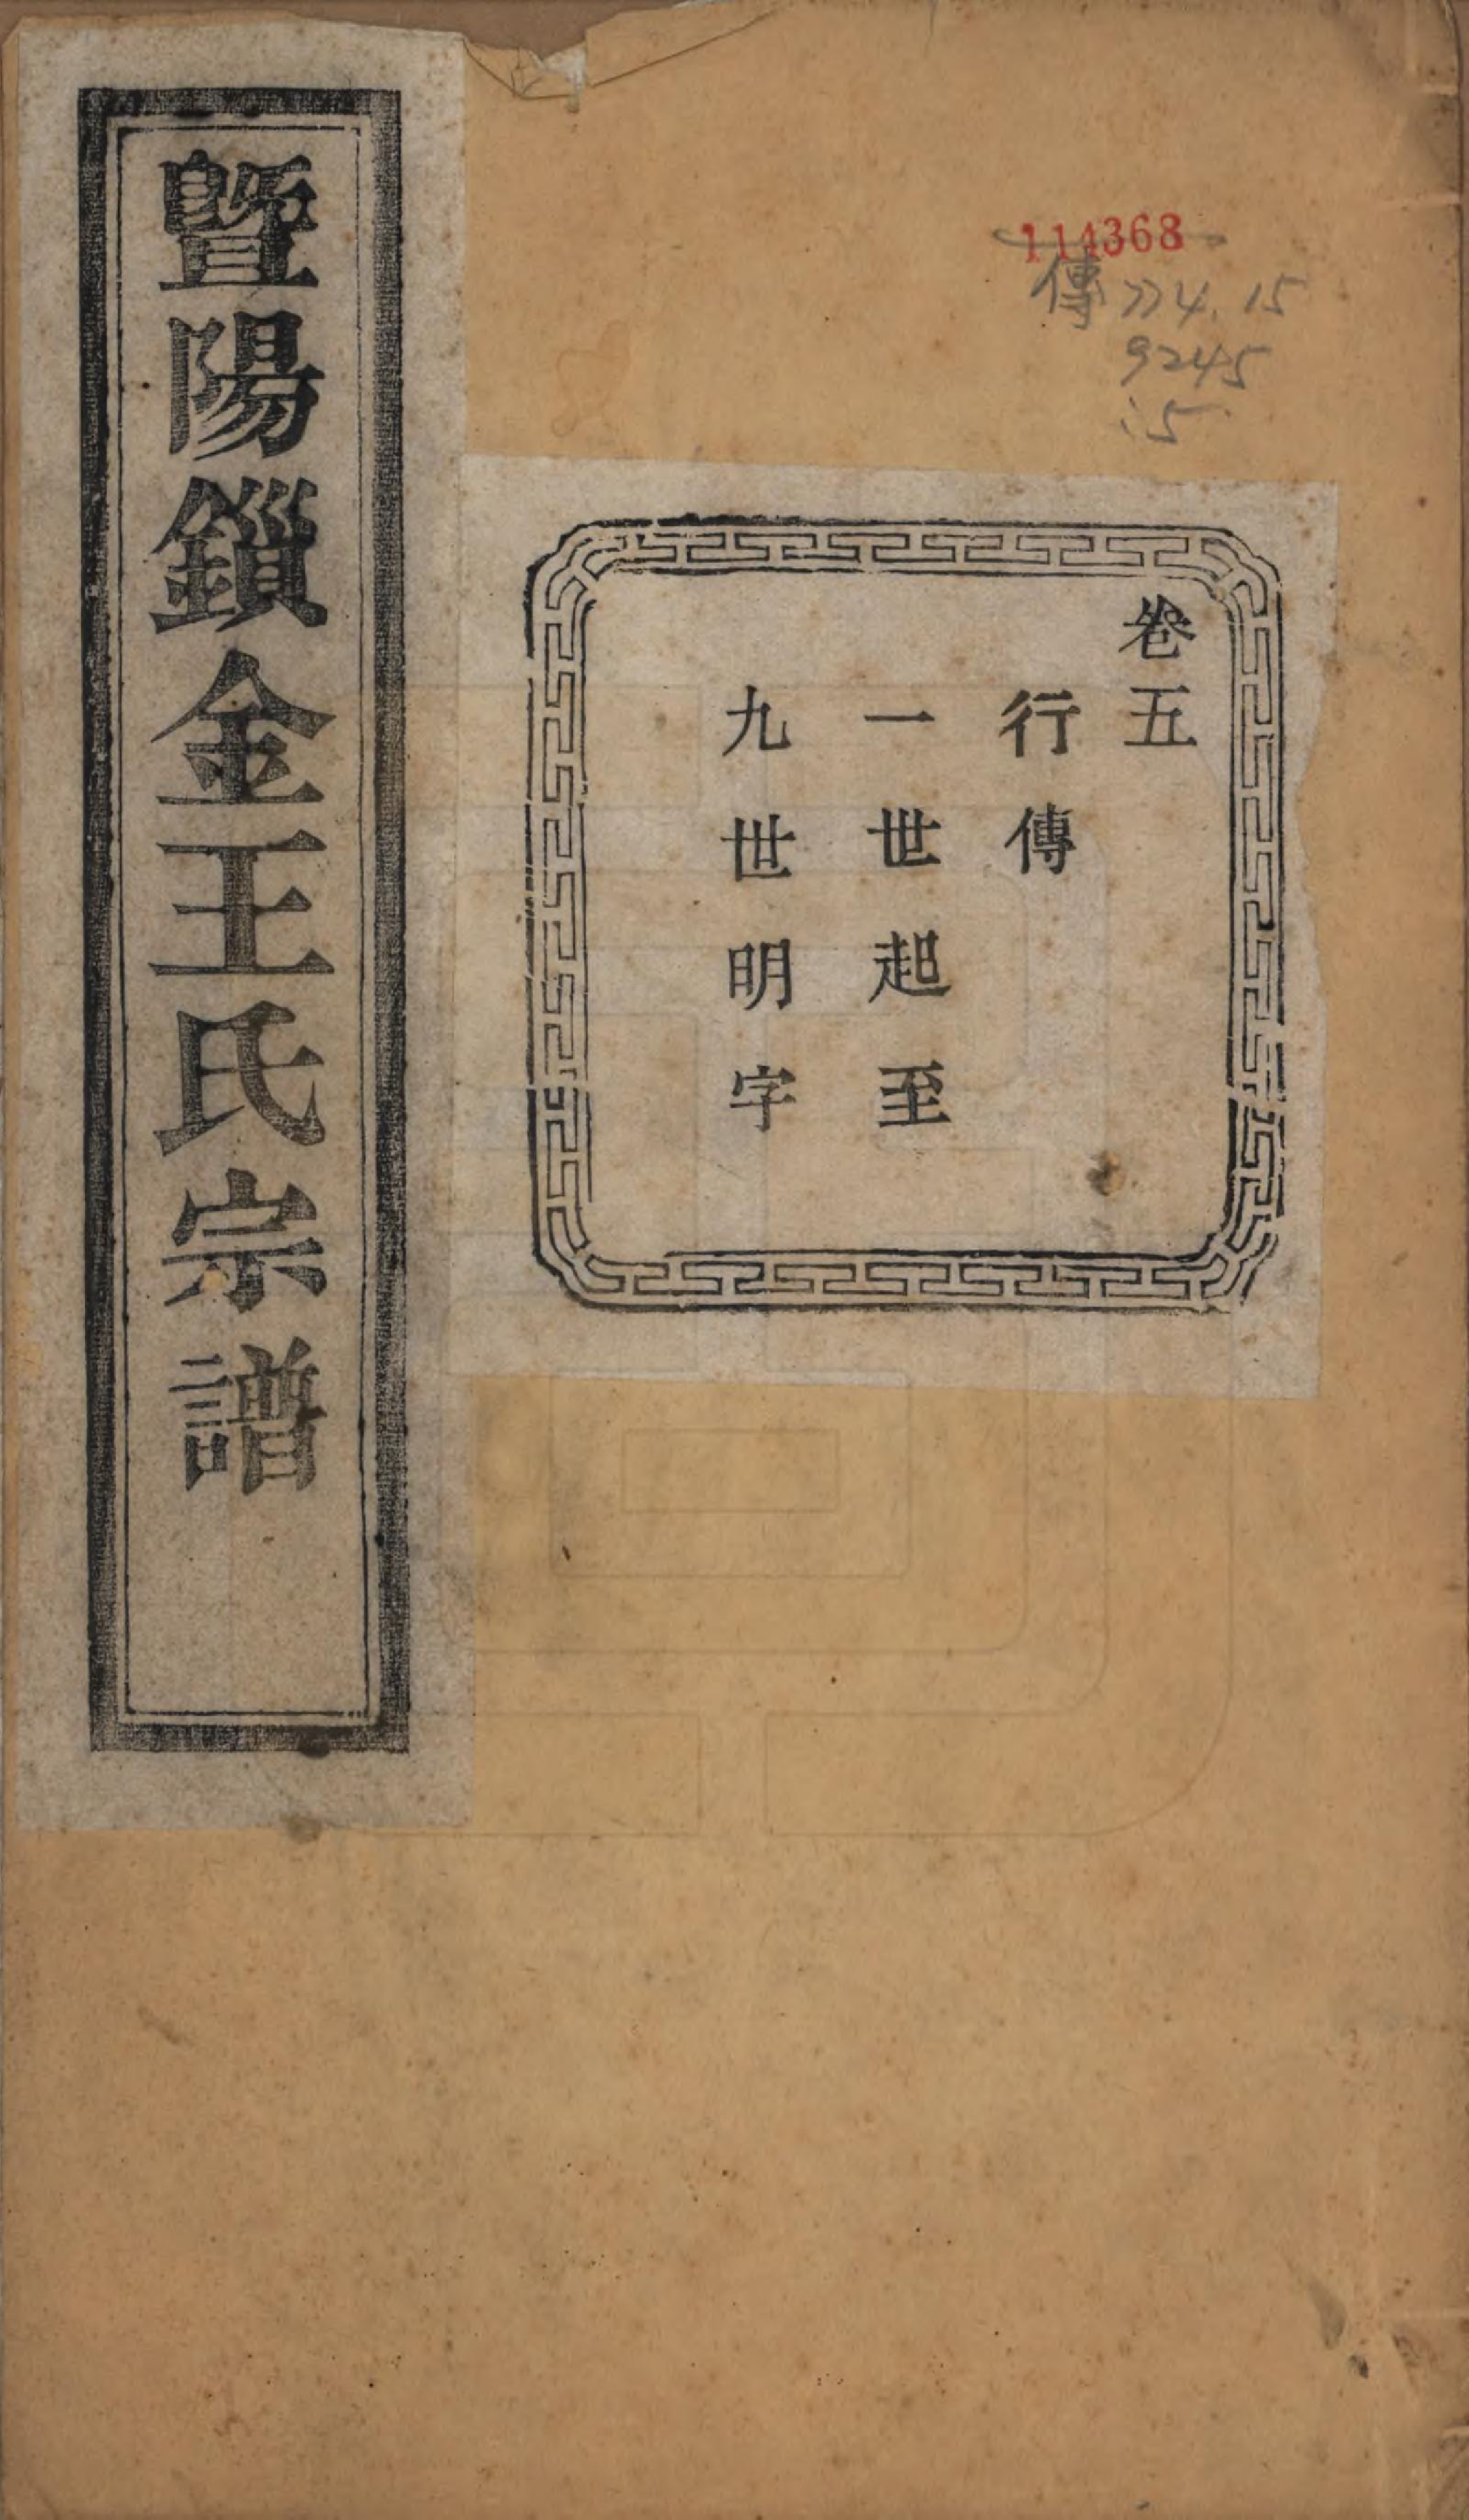 暨陽鎖金王氏宗譜
卷五
行傳
一世起至
九世明字
114368
傳774.15
9245
:5